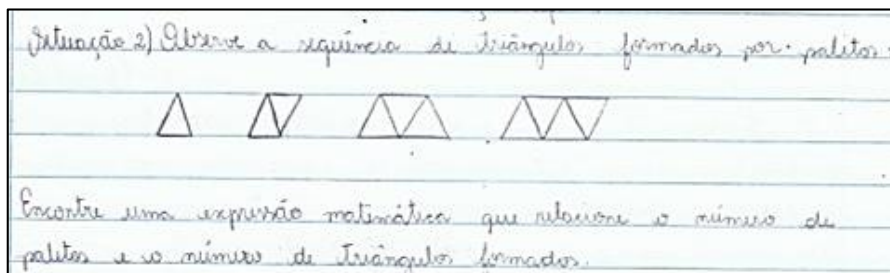 Situação 2) Observe a sequência de triângulos formados por palitos.
Encontre uma expressão matemática que relacione o número de
palitos e o número de triângulos formados.